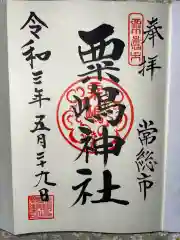 奉拝
常総市
粟嶋神社
令和三年五月二十九日